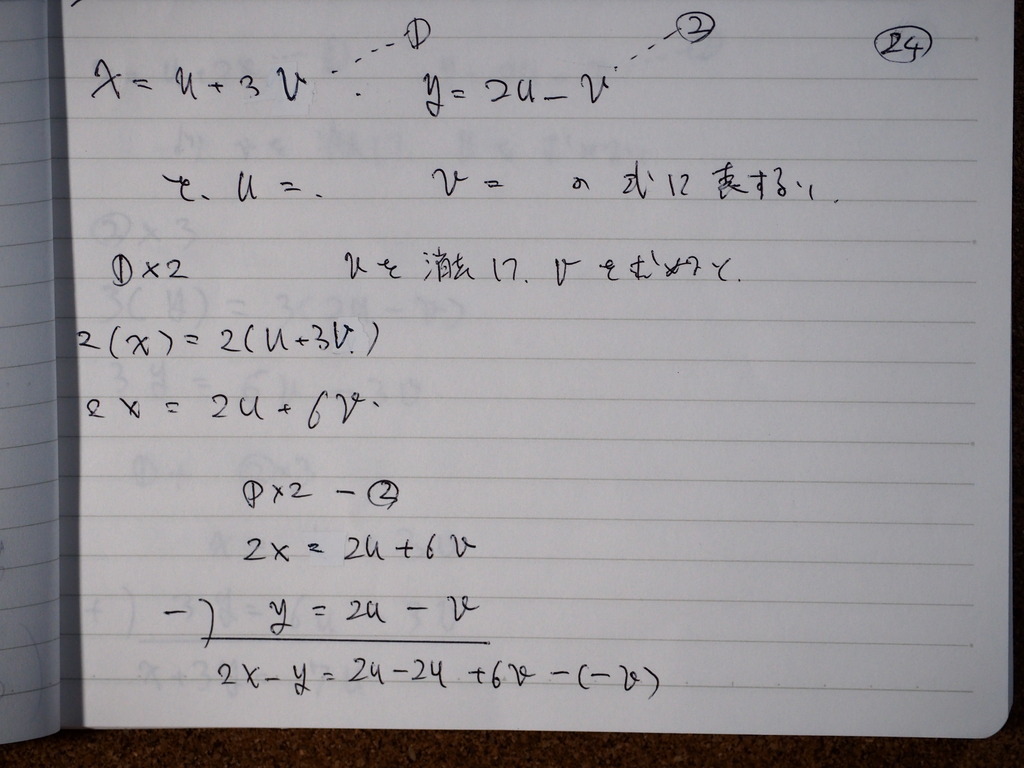 ① ② ㉔
x = u + 3v . y = 2u - v
を、u = . v = の式に表すと、
①×2 uを消去して、vを求めると、
2(x) = 2(u+3v.)
2x = 2u + 6v.
①×2 - ②
2x = 2u + 6v
-) y = 2u - v
2x - y = 2u - 2u + 6v - (-v)